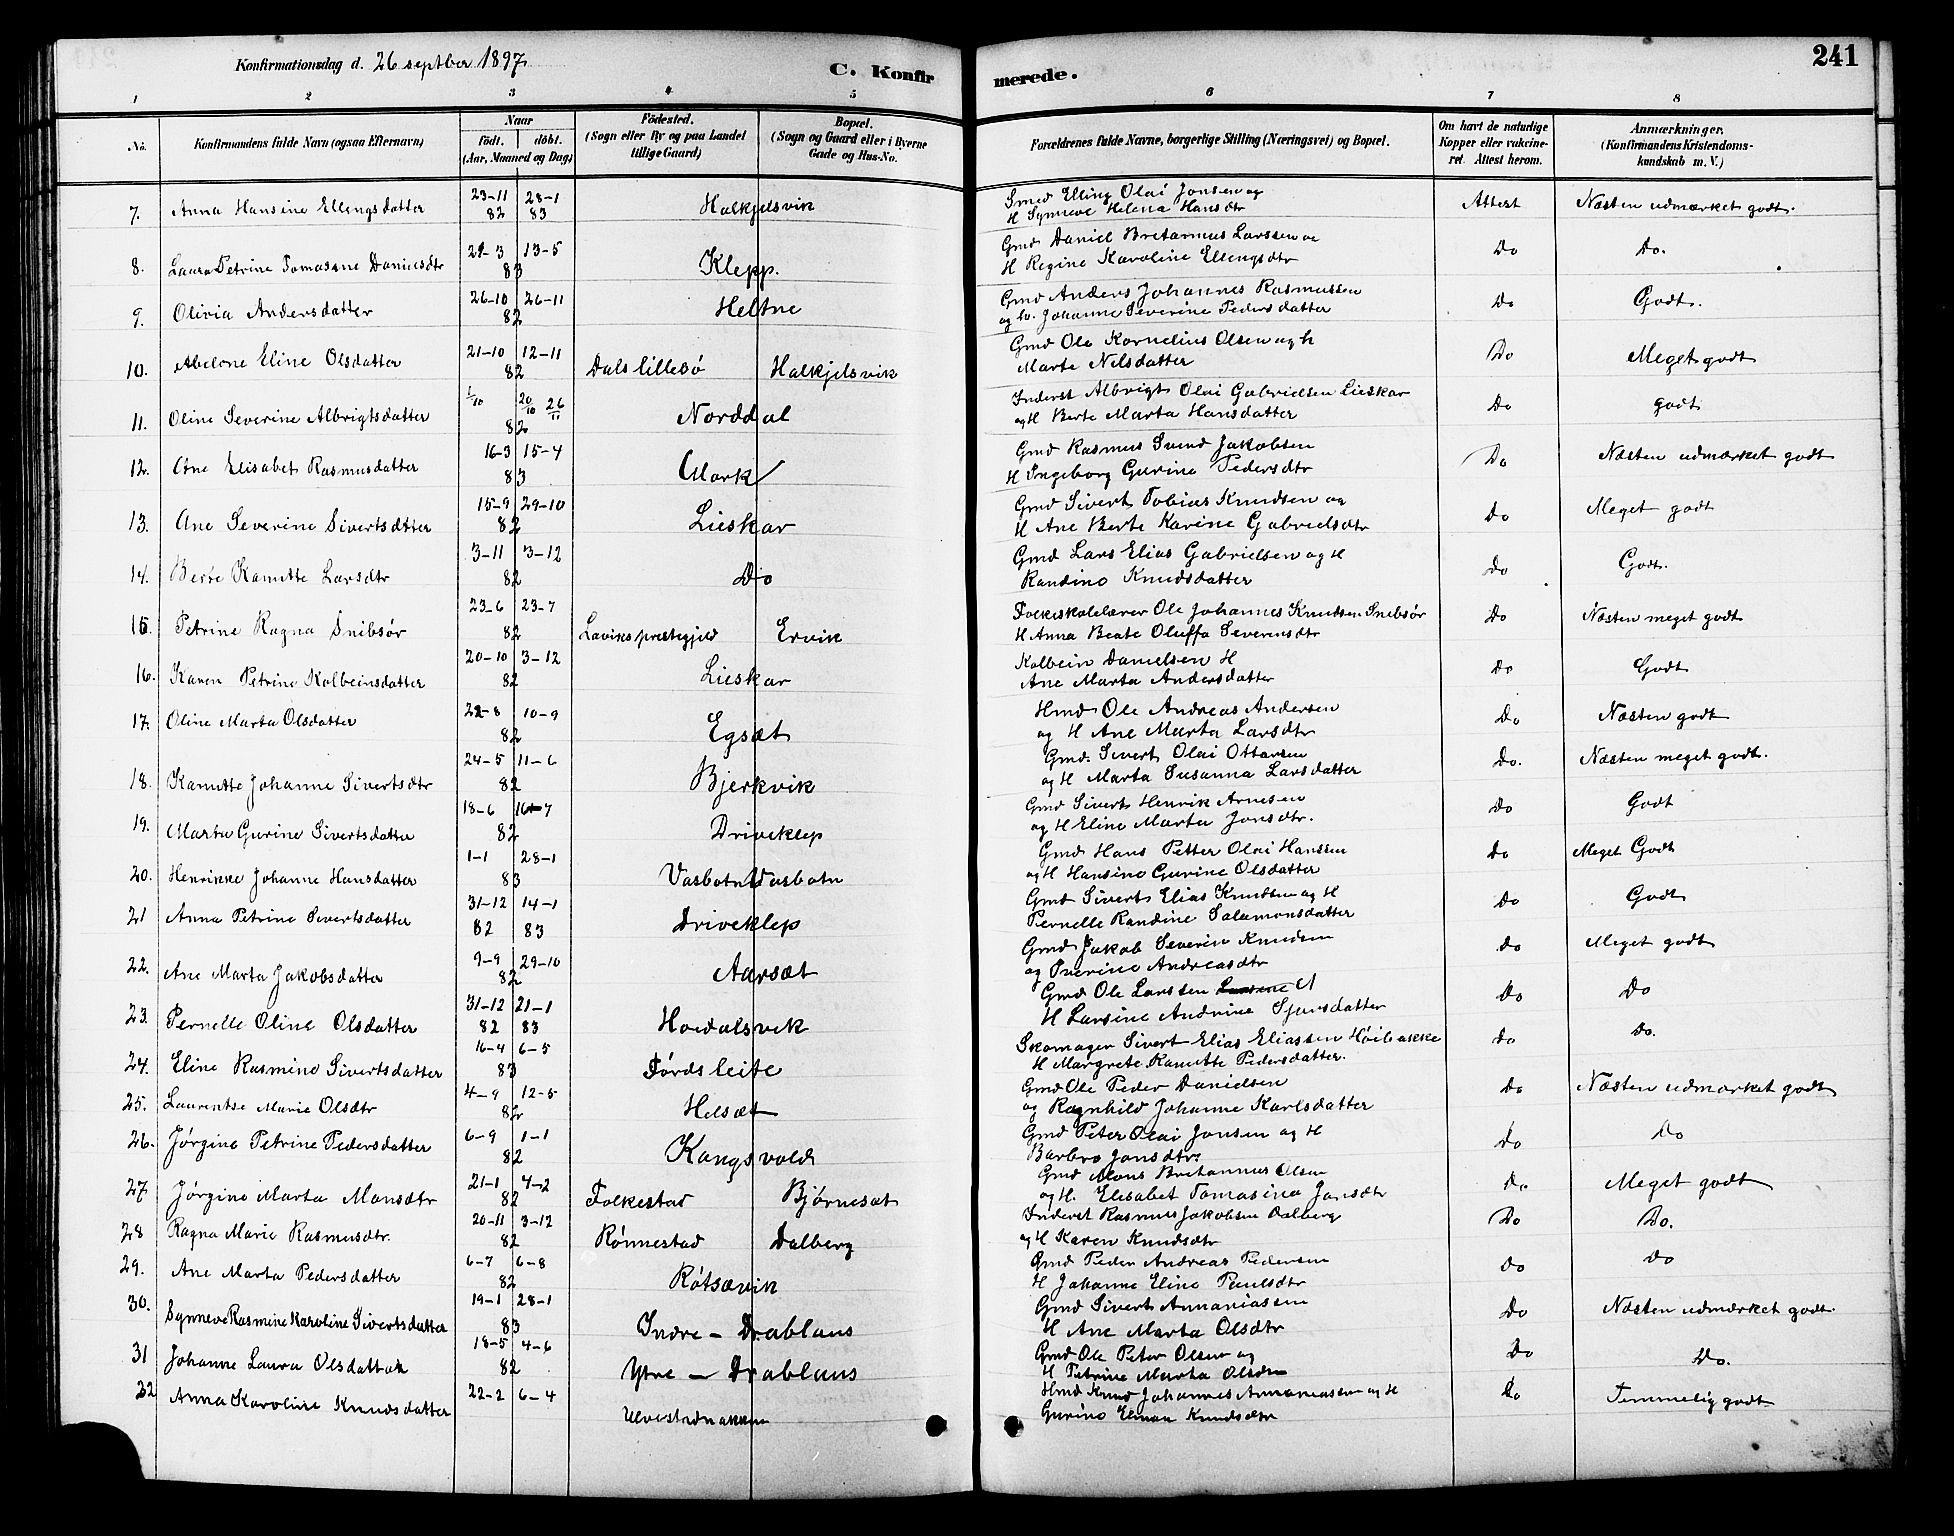 241
Konfirmationsdag d. 26 septber 1897.
C. Konfirmerede.
1 2 3 4 5 6 7 8
No.
Konfirmandens fulde Navn (ogsaa Efternavn)
Naar
födt. döbt.
(Aar, Maaned og Dag)
Födested.
(Sogn eller By og paa Landet tillige Gaard)
Bopæl.
(Sogn og Gaard eller i Byerne Gade og Hus-No.
Forældrenes fulde Navne, borgerlige Stilling (Næringsvei) og Bopæl.
Om havt de naturlige Kopper eller vaccineret. Attest herom.
Anmærkninger.
(Konfirmandens Kristendomskundskab m. V.)
7. Anna Hansine Ellingsdatter 23-11 82 28-1 83 Halkjelsvik Gmd Elling Olai Jonsen og H Synneve Helena Hansdtr Attest Næsten udmærket godt.
8. Laura Petrine Tomasine Danielsdtr 21-3 13-5 83 Klepp. Gmd Daniel Bretanus Larssen og H Regine Karoline Ellengsdtr Do Do.
9. Olivia Andersdatter 26-10 26-11 82 Heltne Gmd Anders Johannes Rasmussen og h. Johanne Severine Pedersdatter Do Godt.
10. Abelone Eline Olsdatter 21-10 12-11 82 Dals lillebø Halkjelsvik Gmd Ole Kornelius Olsen og h Marte Nelsdatter Do Meget godt
11. Oline Severine Albrigtsdatter 1/10 20/10 26/11 82 Norddal Inderst Albrigt Olai Gabrielsen Lieskar og H Berte Marta Hansdatter Do godt
12. Ane Elisabet Rasmusdatter 16-3 15-4 83 Mork Gmd Rasmus Svend Jakobsen H Ingeborg Gurine Pedersdtr Do Næsten udmærket godt
13. Ane Severine Sivertsdatter 15-9 29-10 82 Lieskar Gmd Sivert Tobias Knudsen og H Ane Berte Karine Gabrielsdtr Do Meget godt
14. Berte Kanutte Larsdtr 3-11 3-12 82 Do Gmd Lars Elias Gabrielsen og H Randine Knudsdatter Do Godt.
15. Petrine Ragna Snibsør 23-6 23-7 82 Laviks prestegjeld Ervik Folkeskolelærer Ole Johannes Knudsen Snibsør H Anna Beate Oluffa Severinsdtr Do Næsten meget godt
16. Karen Petrine Kolbeinsdatter 20-10 3-12 82 Lieskar Kolbein Danielsen H Ane Marta Andersdatter Do Godt
17. Oline Marta Olsdatter 22-8 10-9 82 Egsæt Hmd Ole Andreas Andersen og H Ane Marta Larsdtr Do Næsten godt
18. Kanutte Johanne Sivertsdtr 24-5 11-6 82 Bjerkvik Gmd. Sivert Olai Ottarsen og H Marta Susanna Larsdatter Do. Næsten meget godt.
19. Marta Gurine Sivertsdatter 18-6 16-7 82 Driveklep Gmd Sivert Henrik Arnesen og H Eline Marta Jonsdtr. Do Godt
20. Henrikke Johanne Hansdatter 1-1 28-1 83 Vasbotn Vasbotn Gmd Hans Petter Olai Hanssen og H Hansine Gurine Olsdatter Do Meget Godt
21 Anna Petrine Sivertsdatter 31-12 82 14-1 83 Driveklep Gmd Sivert Elias Knudsen og H Pernelle Randine Salamonsdatter Do Godt
22. Ane Marta Jakobsdatter 9-9 29-10 82 Aarsæt Gmd Jakob Severin Knudsen og Andreasdtr Do Meget godt
23. Pernelle Oline Olsdatter 31-12 82 21-1 83 Hovdalsvik Gmd Ole Larssen H Larsine Andrine Sjursdatter Do Do
24. Eline Rasmine Sivertsdatter 16-4 6-5 83 Førdsleite Skomager Sivert Elias Eliassen Høibakke H Margrete Kanutte Pedersdatter. Do Do.
25. Laurentse Marie Olsdtr 4-9 12-5 82 Helsæt Gmd Ole Peder Danielsen og Ragnhild Johanne Karlsdatter Do Næsten udmærket godt
26. Jørgine Petrine Pedersdatter 6-9 1-1 82 Kangsvold Gmd Peter Olai Jonsen og H Barbro Jonsdtr. Do Do
27 Jørgine Marta Monsdtr 21-1 4-2 82 Folkestad Bjørnesæt Gmd Mons Bretannus Olsen og H. Elisabet Tomasine Jonsdtr Do Meget godt
28 Ragna Marie Rasmusdtr. 20-11 3-12 82 Rønnestad Dalberg Inderst Rasmus Jakobsen Dalberg og H Karen Knudsdtr Do Do.
29. Ane Marta Pedersdatter 6-7 6-8 82 Røtsævik Gmd Peder Andreas Pedersen H Johanne Eline Paulsdtr Do Do
30. Synneve Rasmine Karoline Sivertsdatter 19-1 28-1 83 Indre - Drablaus Gmd Sivert Annaniassen H Ane Marta Olsdtr Do Næsten udmærket godt.
31 Johanne Laura Olsdatter 18-5 4-6 82 Ytre - Drablaus Gmd Ole Peter Olsen og H Petrine Marta Olsdtr Do Do.
32 Anna Karoline Knudsdatter 22-2 6-4 Ulvestadnakken Hmd Knud Johannes Annaniassen og H Gurine Knudsdtr Do Temmelig godt